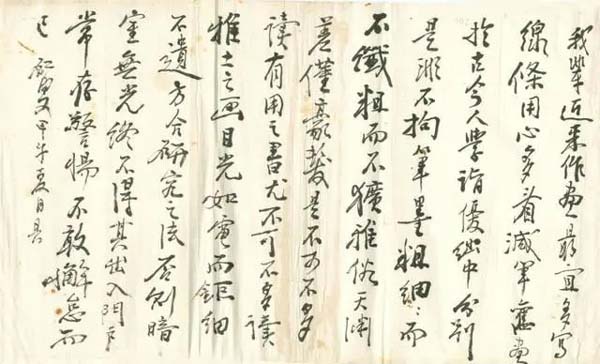 我輩近来作畫最宜多寫
線條用心多看減筆舊畫
於古今人學詣優絀中分判
是非不拘筆墨粗細〻而
不纖粗而不獷雅俗天淵
差僅豪髮是不可不多
讀有用之書尤不可不多讀
雅士之画目光如電而鉅細
不遺方合研究之法否則暗
室無光終不得其出入門戶
常存警惕不敢懈怠而
已 甲午夏日